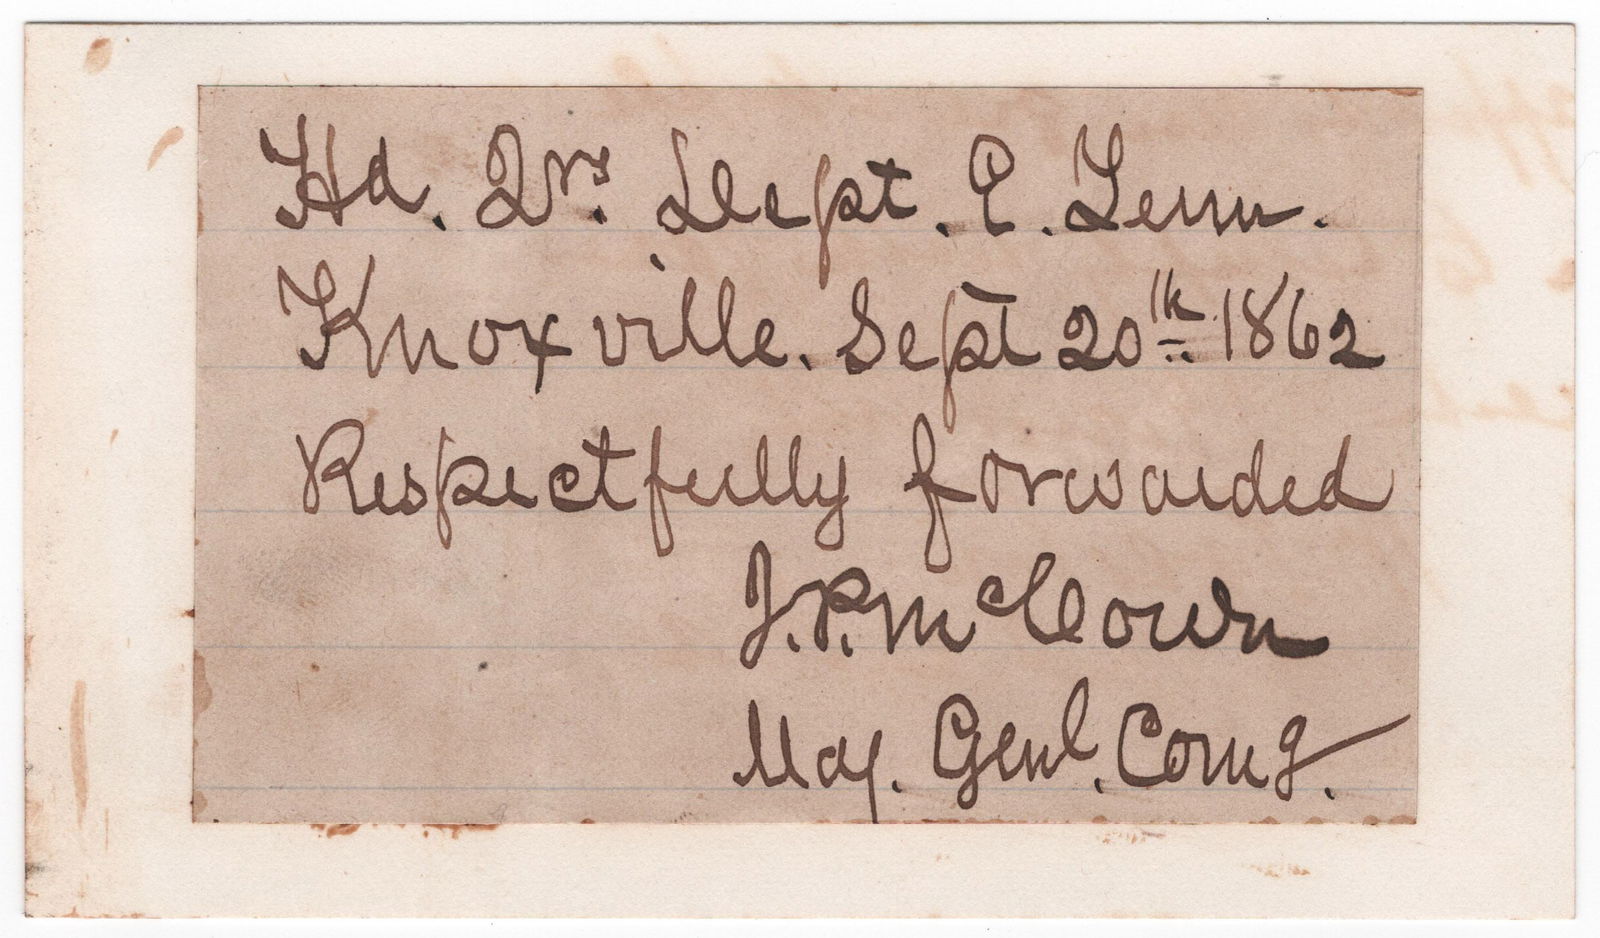 Hd. Qrs. Dept. E. Tenn.
Knoxville. Sept 20th. 1862
Respectfully forwarded
J.P. McCown
Maj. Genl. Comg.